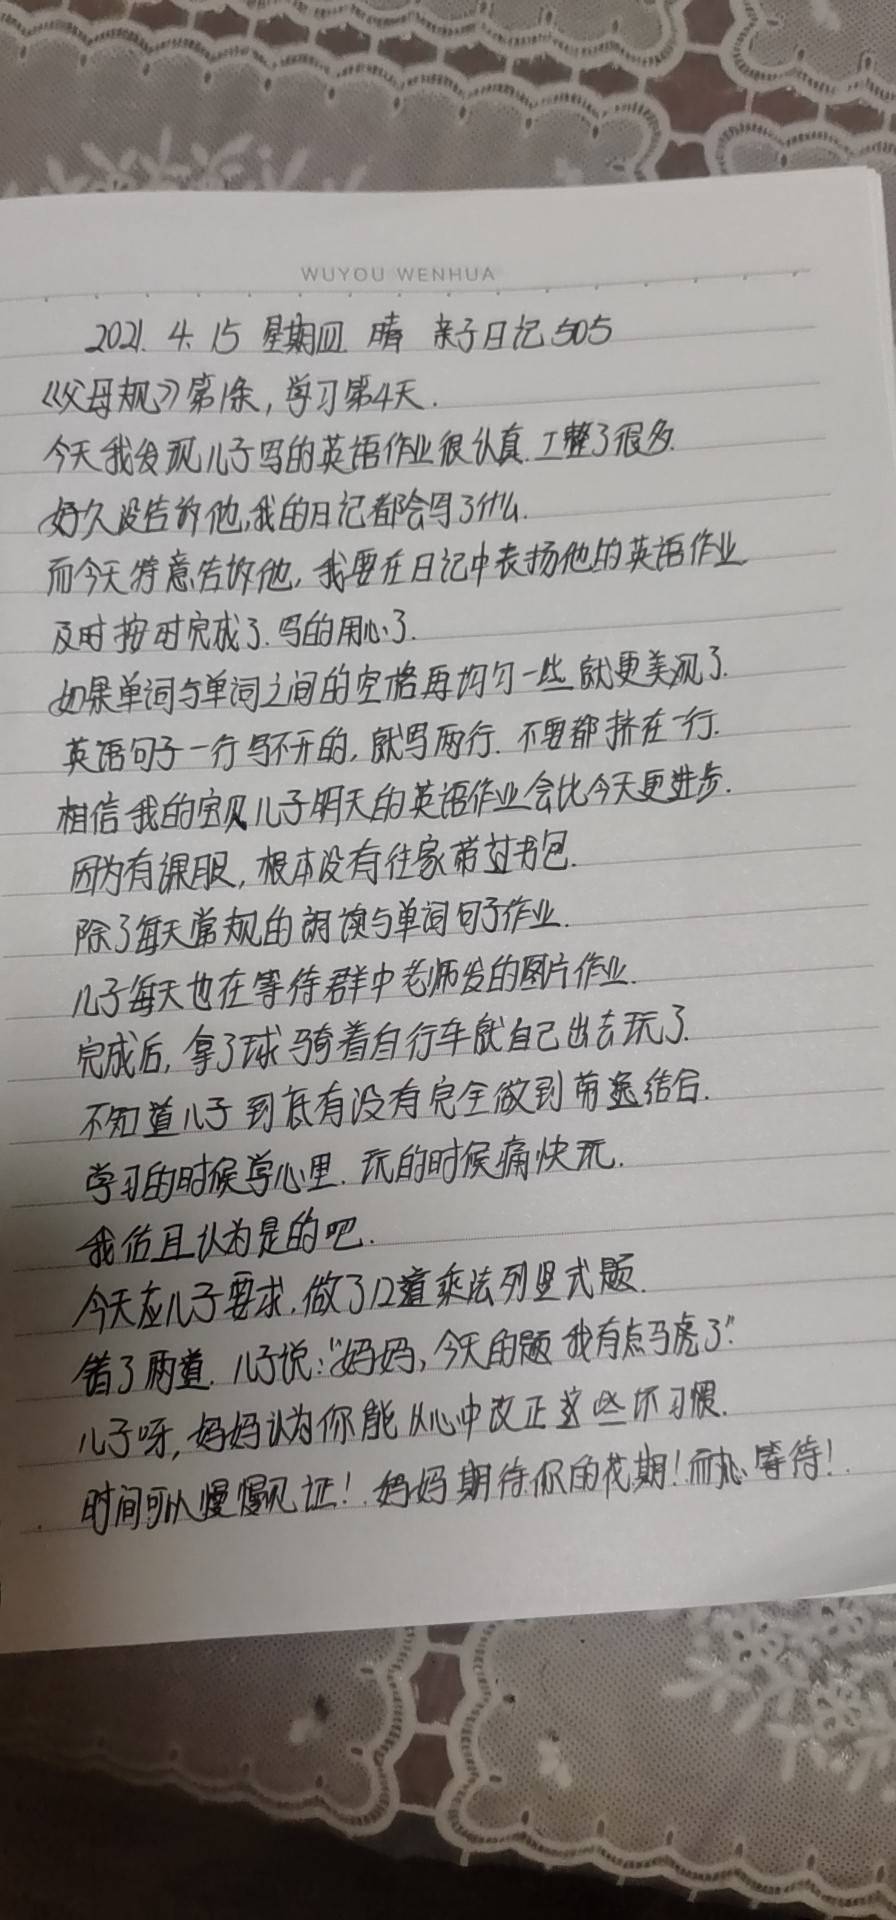 WUYOU WENHUA
2021. 4. 15 星期四. 晴 亲子日记505
《父母规》第1条，学习第4天.
今天我发现儿子写的英语作业很认真.工整了很多.
好久没告诉他,我的日记都会写了什么.
而今天特意告诉他，我要在日记中表扬他的英语作业
及时按时完成了.写的用心了.
如果单词与单词之间的空格再均匀一些就更美观了.
英语句子一行写不开的，就写两行.不要都挤在一行.
相信我的宝贝儿子明天的英语作业会比今天更进步.
因为有课服，根本没有往家带过书包.
除了每天常规的朗读与单词句子作业.
儿子每天也在等待群中老师发的图片作业.
完成后，拿了球骑着自行车就自己出去玩了.
不知道儿子到底有没有完全做到劳逸结合.
学习的时候学心里.玩的时候痛快玩.
我估且认为是的吧.
今天应儿子要求.做了12道乘法列竖式题.
错了两道.儿子说:"妈妈，今天的题我有点马虎了".
儿子呀,妈妈认为你能从心中改正这些坏习惯.
时间可以慢慢见证！妈妈期待你的花期！耐心等待！